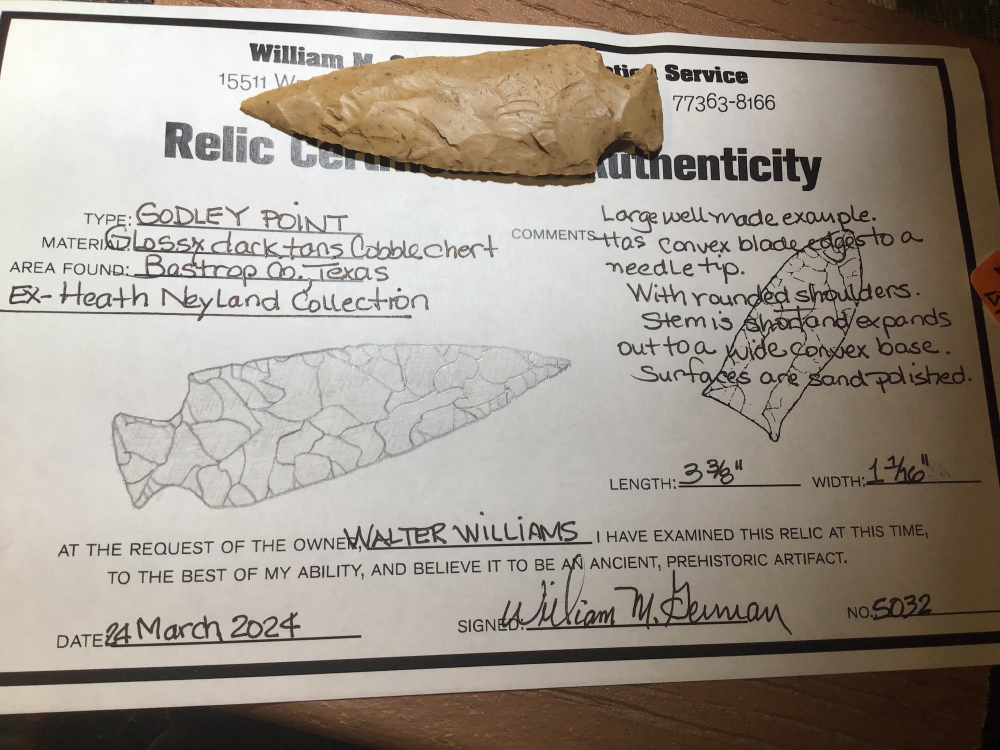 William M. Service
15511 77363-8166
Relic Authenticity
TYPE: GODLEY POINT
MATERIAL Glossy dack tans Cobble chert
AREA FOUND: Bastrop Co., Texas
Ex- Heath Neyland Collection
COMMENTS Large well made example.
Has convex blade edges to a
needle tip.
With rounded shoulders.
Stem is short and expands
out to a wide convex base.
Surfaces are sand polished.
LENGTH: 3 3/8" WIDTH: 1 1/16"
AT THE REQUEST OF THE OWNER, WALTER WILLIAMS I HAVE EXAMINED THIS RELIC AT THIS TIME,
TO THE BEST OF MY ABILITY, AND BELIEVE IT TO BE AN ANCIENT, PREHISTORIC ARTIFACT.
DATE 24 March 2024 SIGNED: William M. German NO. 5032